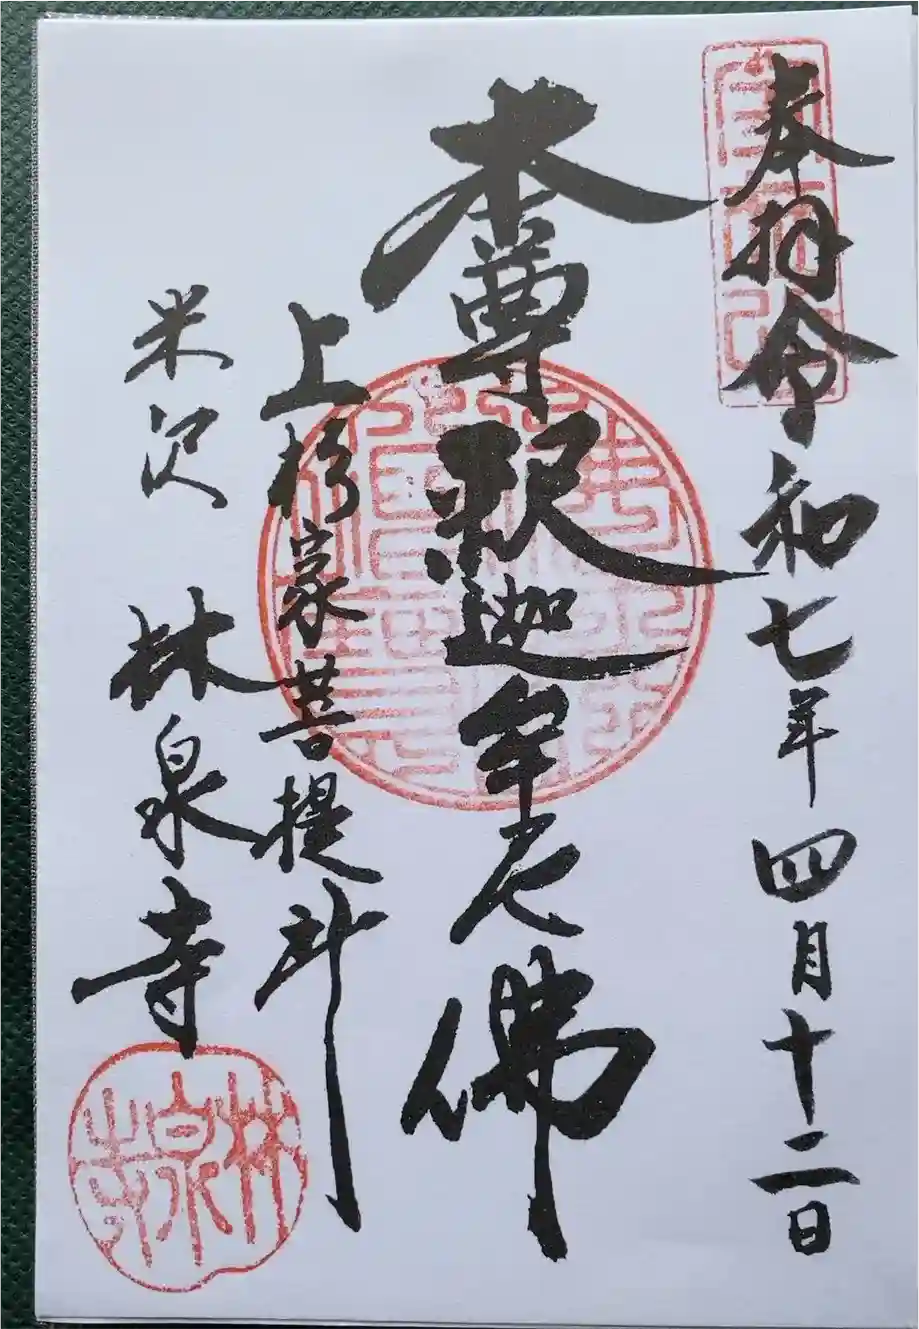 奉拝 令和七年四月十二日
本尊釈迦牟尼佛
上杉家菩提所
米沢 林泉寺
林泉寺